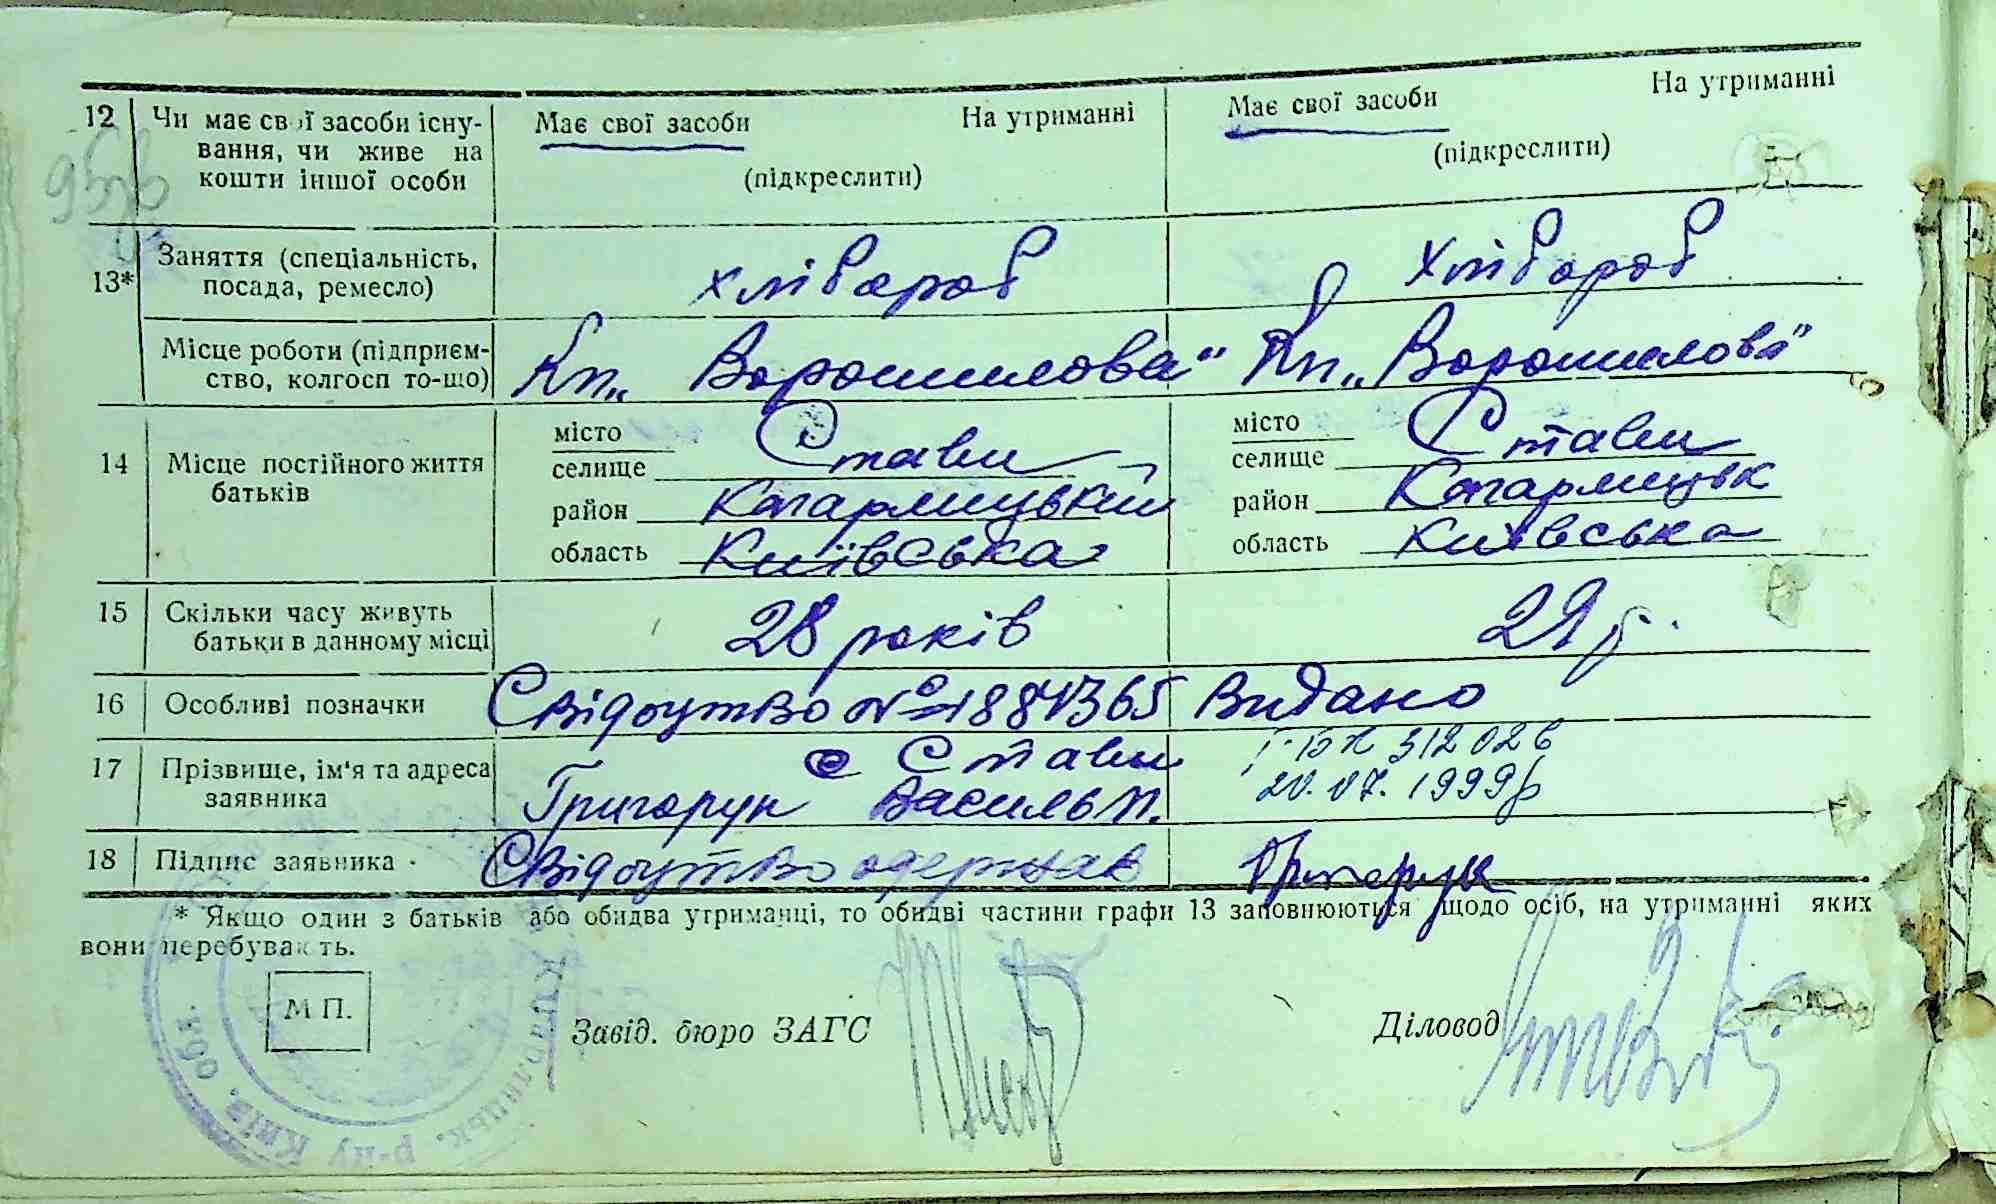 12 Чи має свої засоби існу- Має свої засоби На утриманні Має свої засоби На утриманні
вання, чи живе на
кошти іншої особи (підкреслити) (підкреслити)
13* Заняття (спеціальність, хлібороб хлібороб
посада, ремесло)
Місце роботи (підприєм- Кп „Ворошилова" Кп „Ворошилова"
ство, колгосп то-що)
14 Місце постійного життя батьків
місто
селище Стави
район Кагарлицький
область Київська
місто
селище Стави
район Кагарлицьк
область Київська
15 Скільки часу живуть 28 років 29 р.
батьки в данному місці
16 Особливі позначки Свідоцтво № 1884365 Видано
17 Прізвище, ім'я та адреса с Стави
заявника Григорук Василь П. 20.07.1999р
18 Підпис заявника Свідоцтво одержав Григорук
* Якщо один з батьків або обидва утриманці, то обидві частини графи 13 заповнюються щодо осіб, на утриманні яких
вони перебувають.
М П. Завід. бюро ЗАГС Діловод
Кагарлицьк. р-ну Київ. обл.